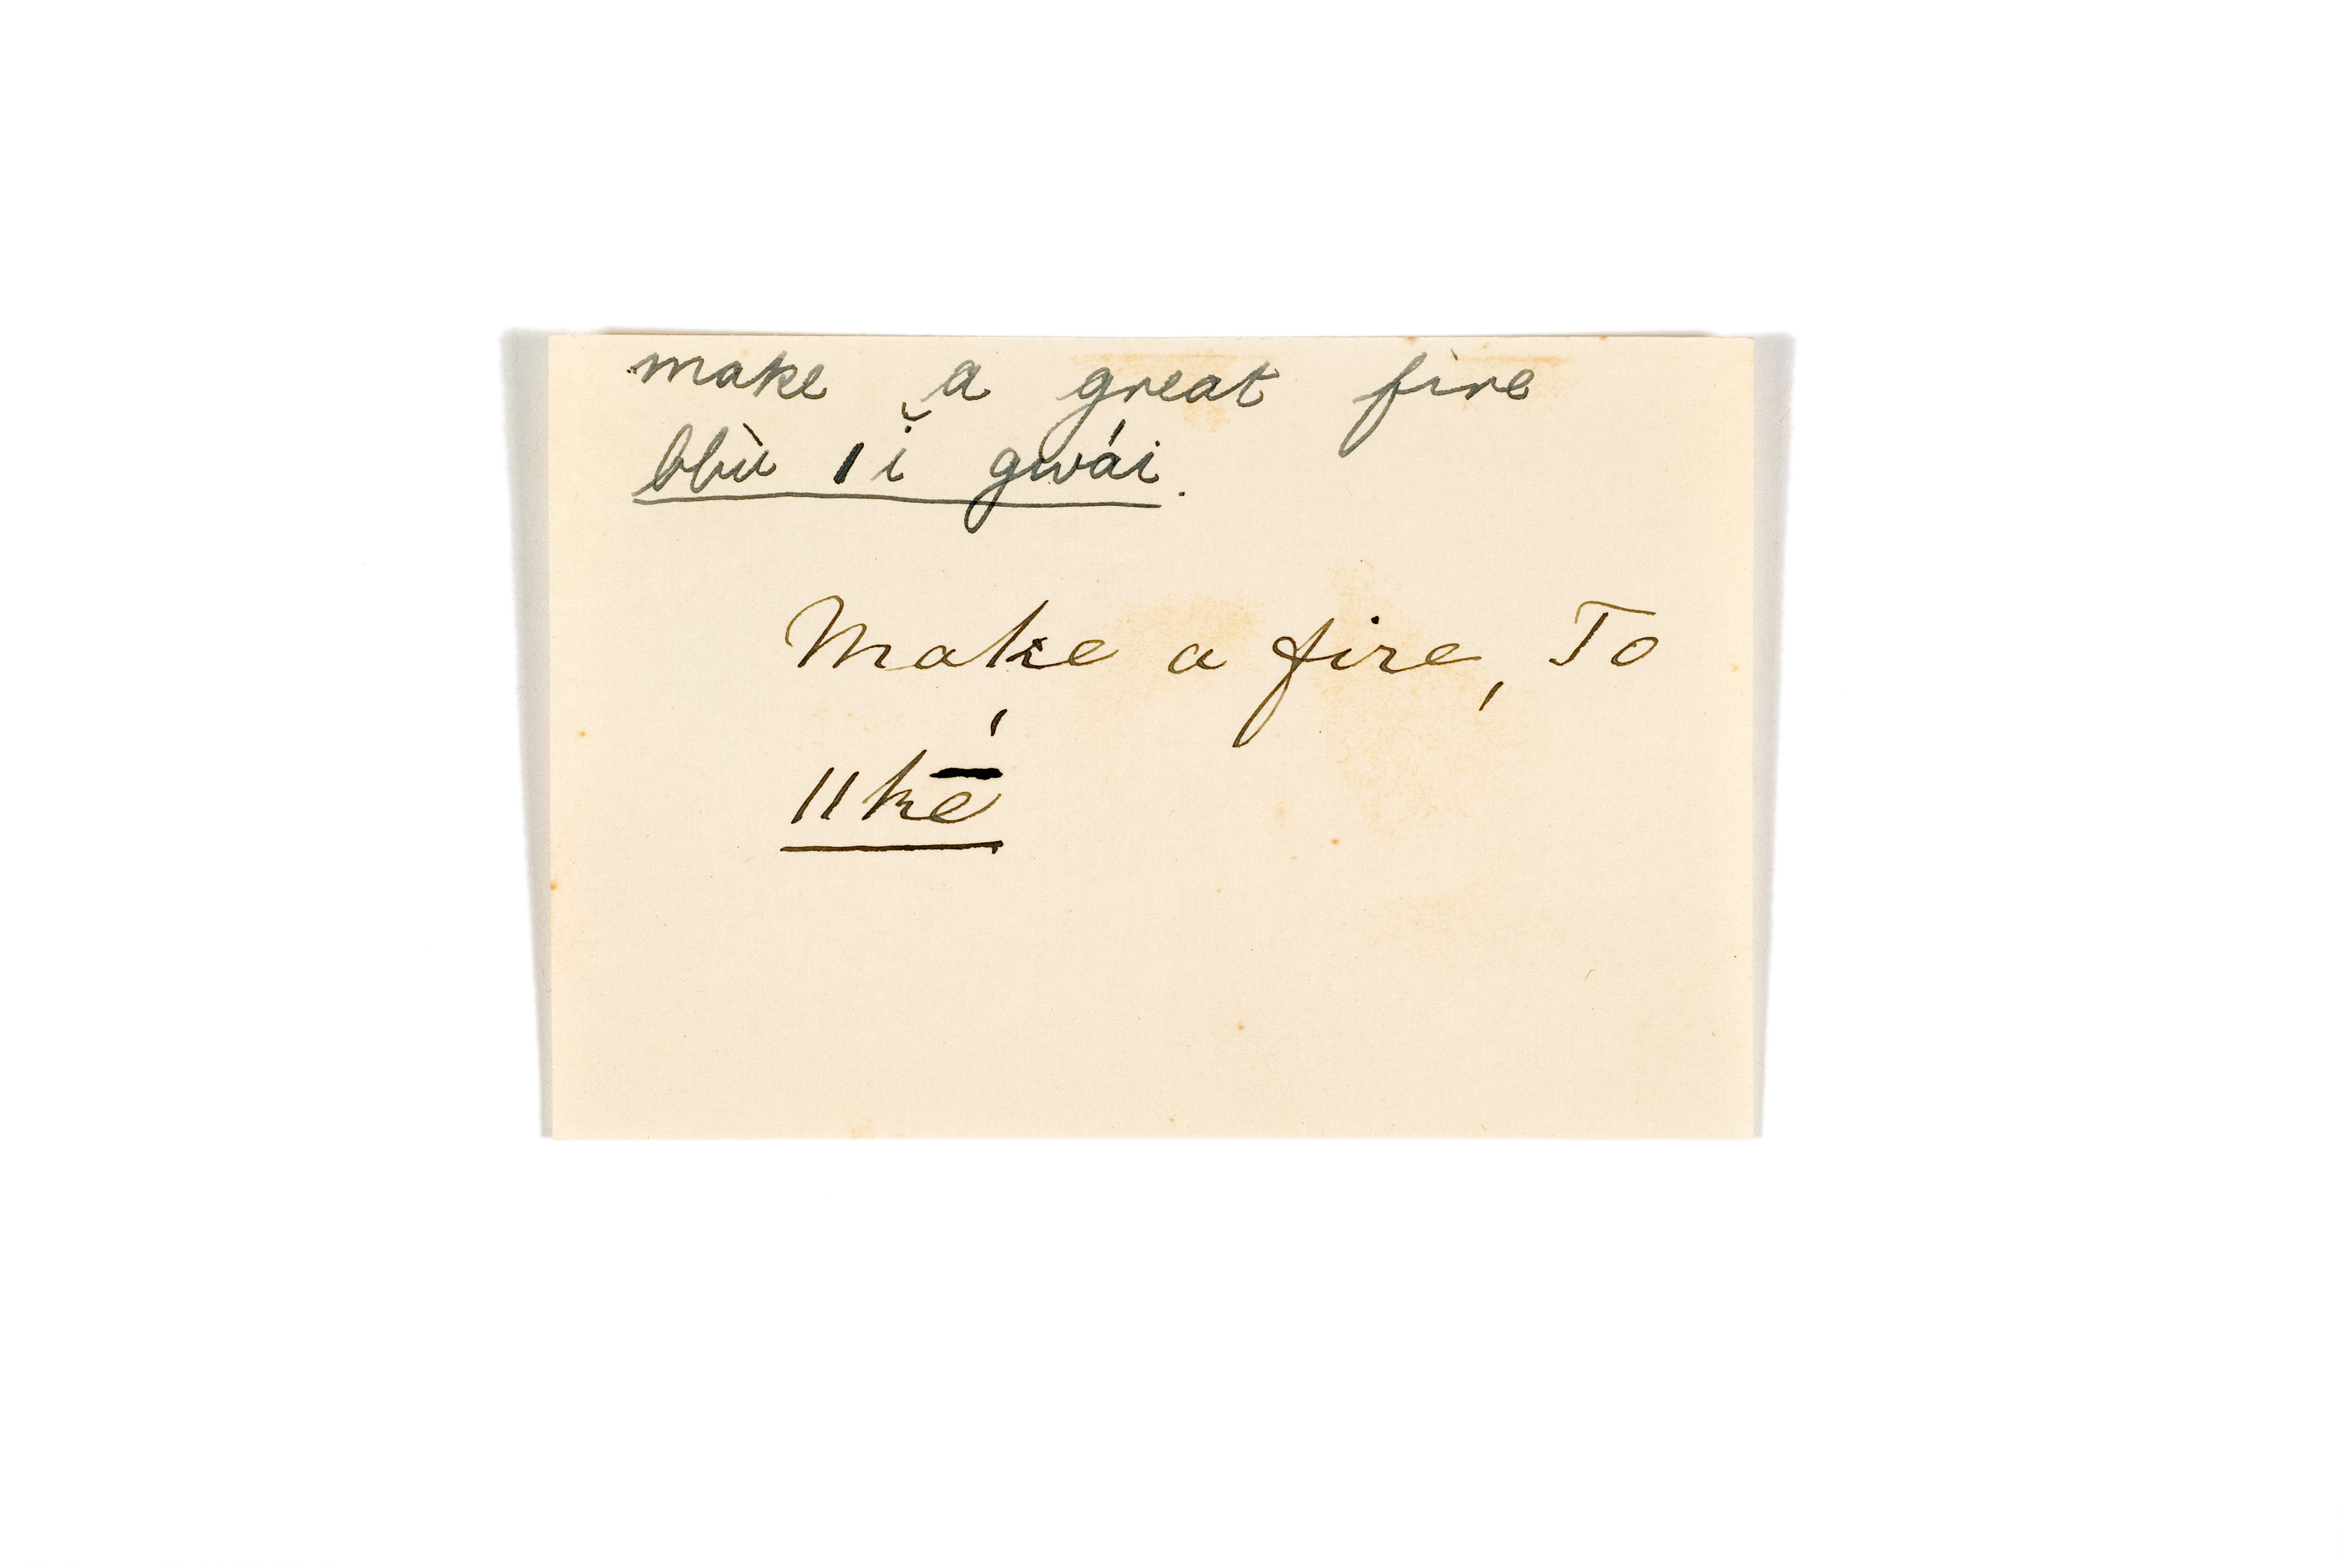 make a great fire
bbù |ĭ gwái.
Make a fire, To
||kḗ